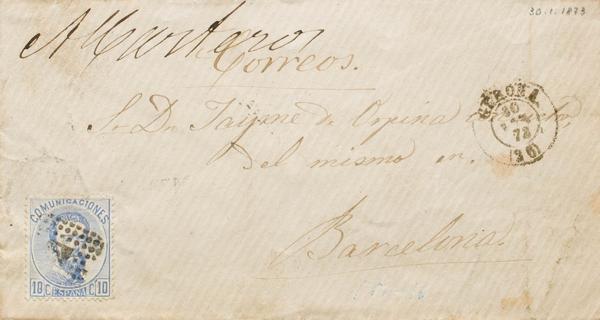 30.1.1873
A Cartero
Correos.
Sr. Dn. Jayme de Ospina
del mismo en
Barcelona.
GERONA
30
73
(30)
COMUNICACIONES
10 C. ESPAÑA C. 10